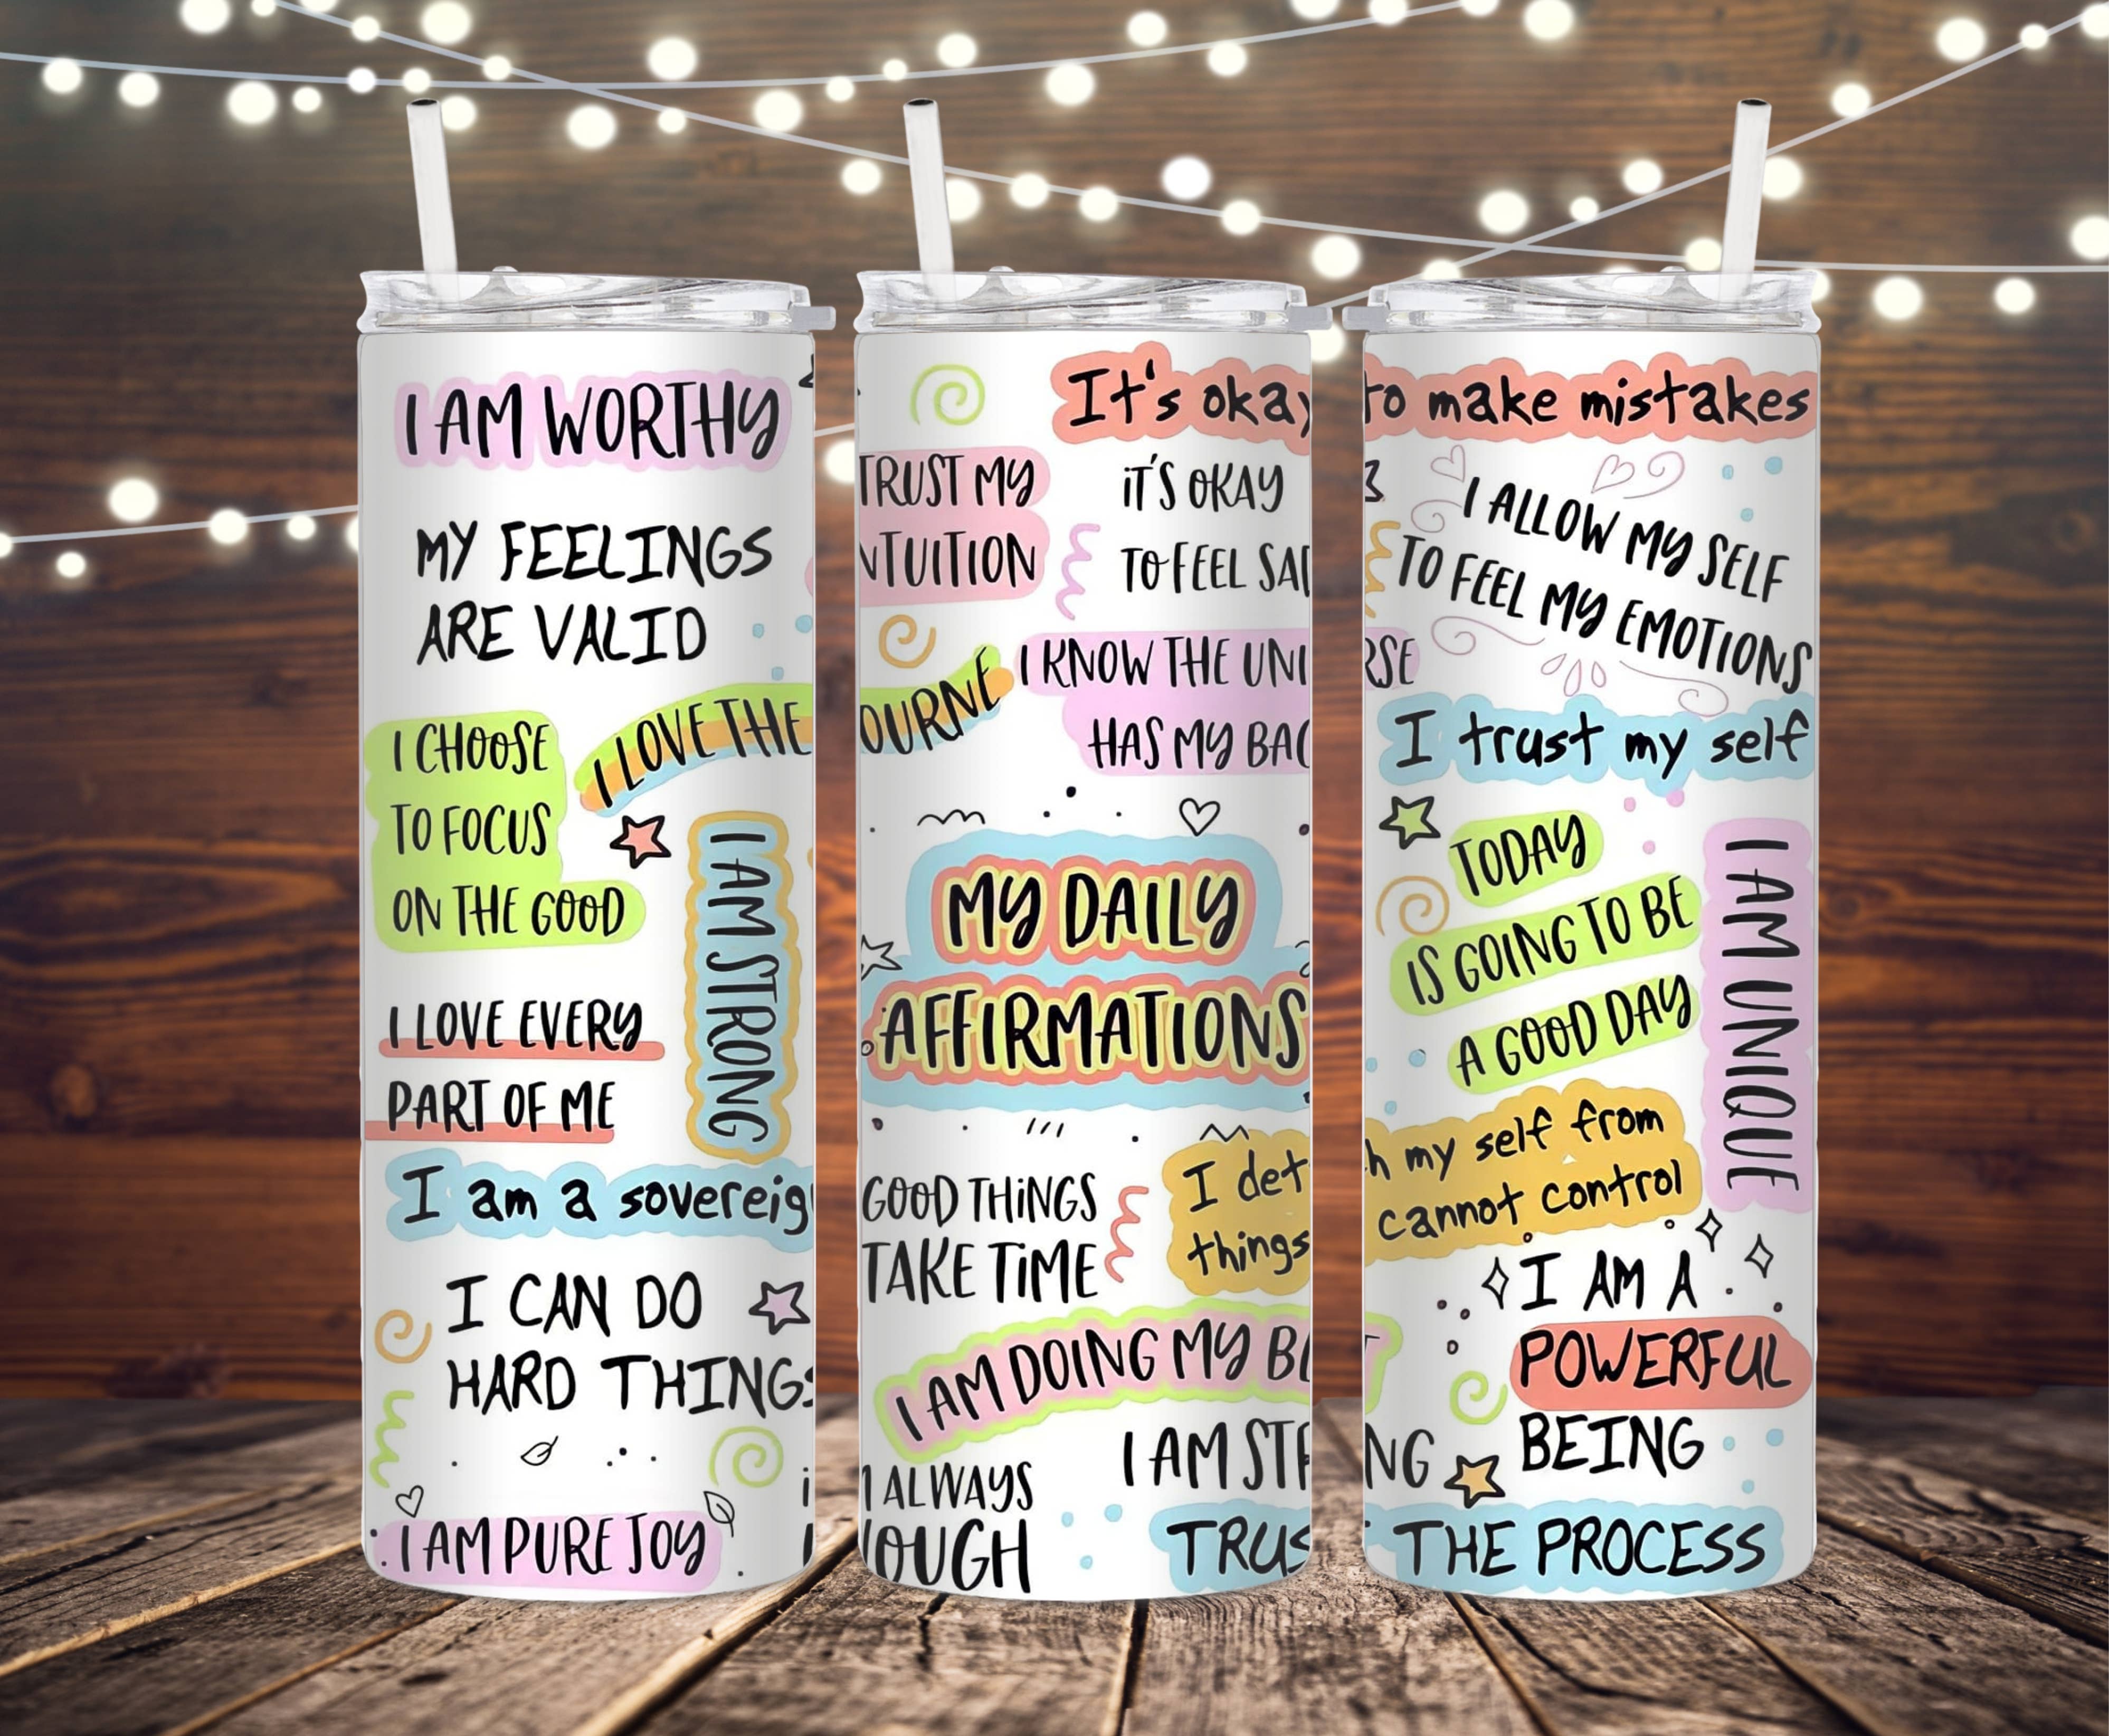 I AM WORTHY
MY FEELINGS
ARE VALID
I CHOOSE
TO FOCUS
ON THE GOOD
I LOVE THE
I AM STRONG
I LOVE EVERY
PART OF ME
I am a sovereig
I CAN DO
HARD THINGS
I AM PURE JOY
It's okay
TRUST MY
NTUITION
IT'S OKAY
TO FEEL SAD
OURNE
I KNOW THE UNI
HAS MY BAC
MY DAILY
AFFIRMATIONS
GOOD THINGS
TAKE TIME
I det
things
I AM DOING MY BE
I AM STR
ALWAYS
OUGH
TRUS
to make mistakes
I ALLOW MY SELF
TO FEEL MY EMOTIONS
RSE
I trust my self
TODAY
IS GOING TO BE
A GOOD DAY
I AM UNIQUE
h my self from
cannot control
I AM A
POWERFUL
BEING
NG
THE PROCESS